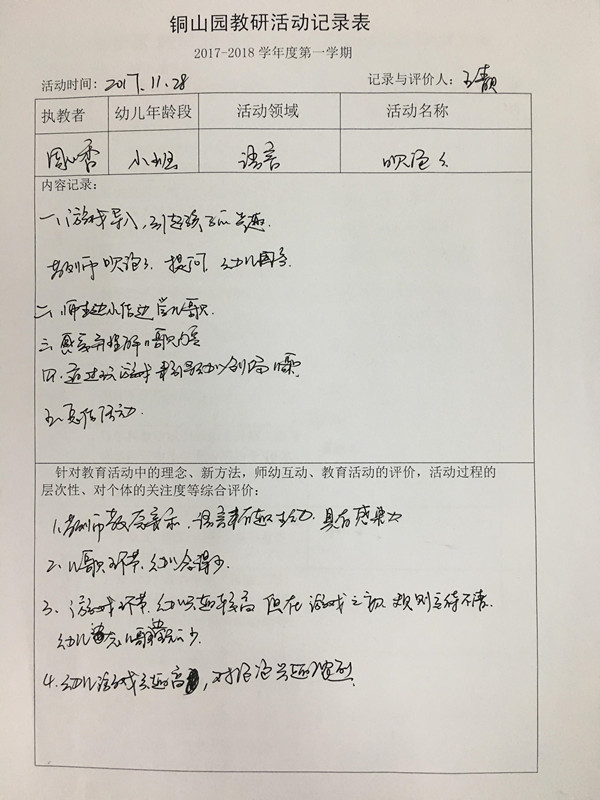 铜山园教研活动记录表
2017-2018 学年度第一学期
活动时间: 2017.11.28 记录与评价人: 王靓
执教者 幼儿年龄段 活动领域 活动名称
周 香 小班 语言 吹泡泡
内容记录:
一、游戏导入,引起孩子的兴趣.
教师吹泡泡 提问, 幼儿回答.
二、师边小结边 儿歌.
三、感受并理解儿歌内容
四、 游戏
五、 活动.
针对教育活动中的理念、新方法,师幼互动、教育活动的评价,活动过程的
层次性、对个体的关注度等综合评价:
1、教师教态亲和, 语言 生动, 具有感染力
2、儿歌环节,幼儿念得少.
3、游戏环节,幼儿兴趣较高 但在游戏之初 规则交待不清.
幼儿 儿歌 少.
4.幼儿游戏兴趣高,对泡泡兴趣强烈.